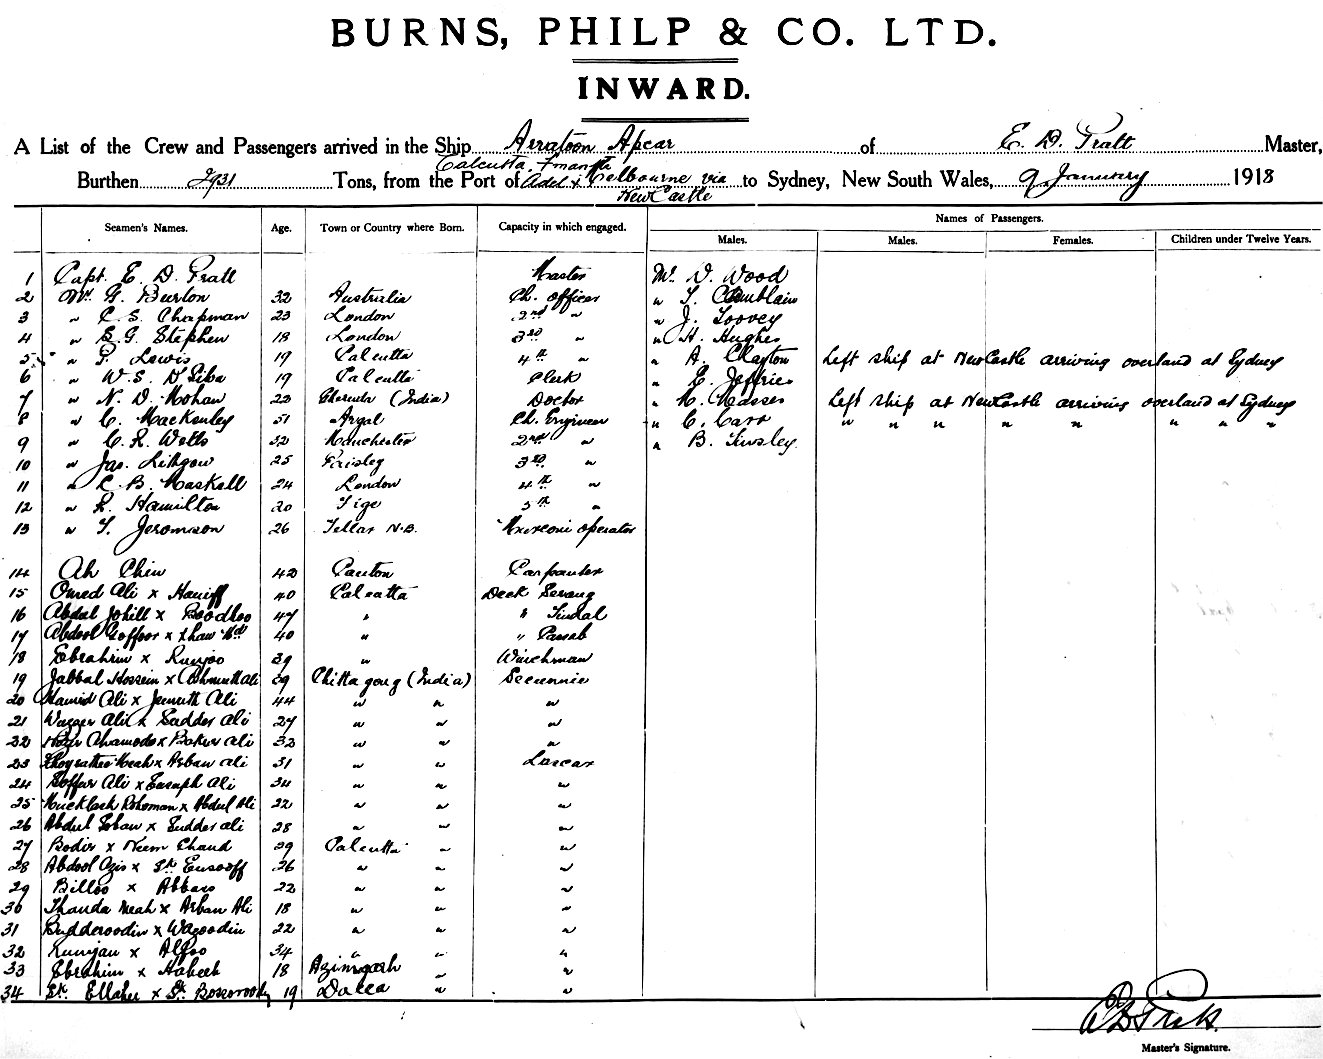 BURNS, PHILP & CO. LTD.
INWARD.
A List of the Crew and Passengers arrived in the Ship Arratoon Apcar of E. D. Pratt Master,
Calcutta, Fmantle
Burthen 2931 Tons, from the Port of Adel & Melbourne via to Sydney, New South Wales, 9 January 1918
NewCastle
Names of Passengers.
Seamen's Names. Age. Town or Country where Born. Capacity in which engaged. Males. Males. Females. Children under Twelve Years.
1 Capt. E. D. Pratt Master Mr. D. Wood
2 Mr. G. Burton 32 Australia Ch. officer " T.
3 " C. S. Chapman 23 London 2nd " " J. Toovey
4 " S. G. Stephen 18 London 3rd " " H. Hughes
5 " P. Lewis 19 Calcutta 4th " " A. Clayton Left ship at NewCastle arriving overland at Sydney
6 " W. S. D'Silva 19 Calcutta Clerk " E. Jeffries
7 " N. D. Mohan 23 (India) Doctor " Left ship at NewCastle arriving overland at Sydney
8 " C. MacKenley 51 Ch. Engineer " C. Carr " " " " " " " "
9 " C. R. Wells 32 Manchester 2nd " " B. Tinsley
10 " Jas. Lithgow 25 Paisley 3rd "
11 " C. B. Maskell 24 London 4th "
12 " R. Hamilton 20 5th "
13 " T. Jeromson 26 N.B. Marconi operator
14 Ah Chin 42 Canton Carpenter
15 Omed Ali x Haniff 40 Calcutta Deck Serang
16 Abdul Johill x Boodhoo 47 " " Tindal
17 Abdool Goffoor x 40 " " Cassab
18 Ebrahim x Runjoo 39 " Winchman
19 Jabbal Hossein x 39 Chittagong (India) Seconnie
20 Hamid Ali x Ali 44 " " "
21 Ali x Saddor Ali 27 " " "
22 x Baker Ali 32 " " "
23 x Arban Ali 31 " " Lascar
24 Goffur Ali x Ali 34 " " "
25 x Abdul Ali 22 " " "
26 Abdul x Ali 28 " " "
27 Bodir x Neem Chand 29 Calcutta " "
28 Abdool Azis x Sk Eusooff 26 " " "
29 Billoo x Abbas 22 " " "
30 Meah x Arban Ali 18 " " "
31 Budderoodin x 22 " " "
32 Runjan x 34 " " "
33 Ebrahim x Habeeb 18 Azimgarh " "
34 Sk. Ellahee x Sk. 19 Dacca " "
E D Pratt.
Master's Signature.